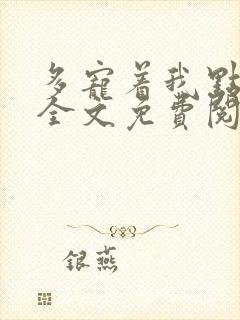 多寵着我點
全文免費閱
銀燕